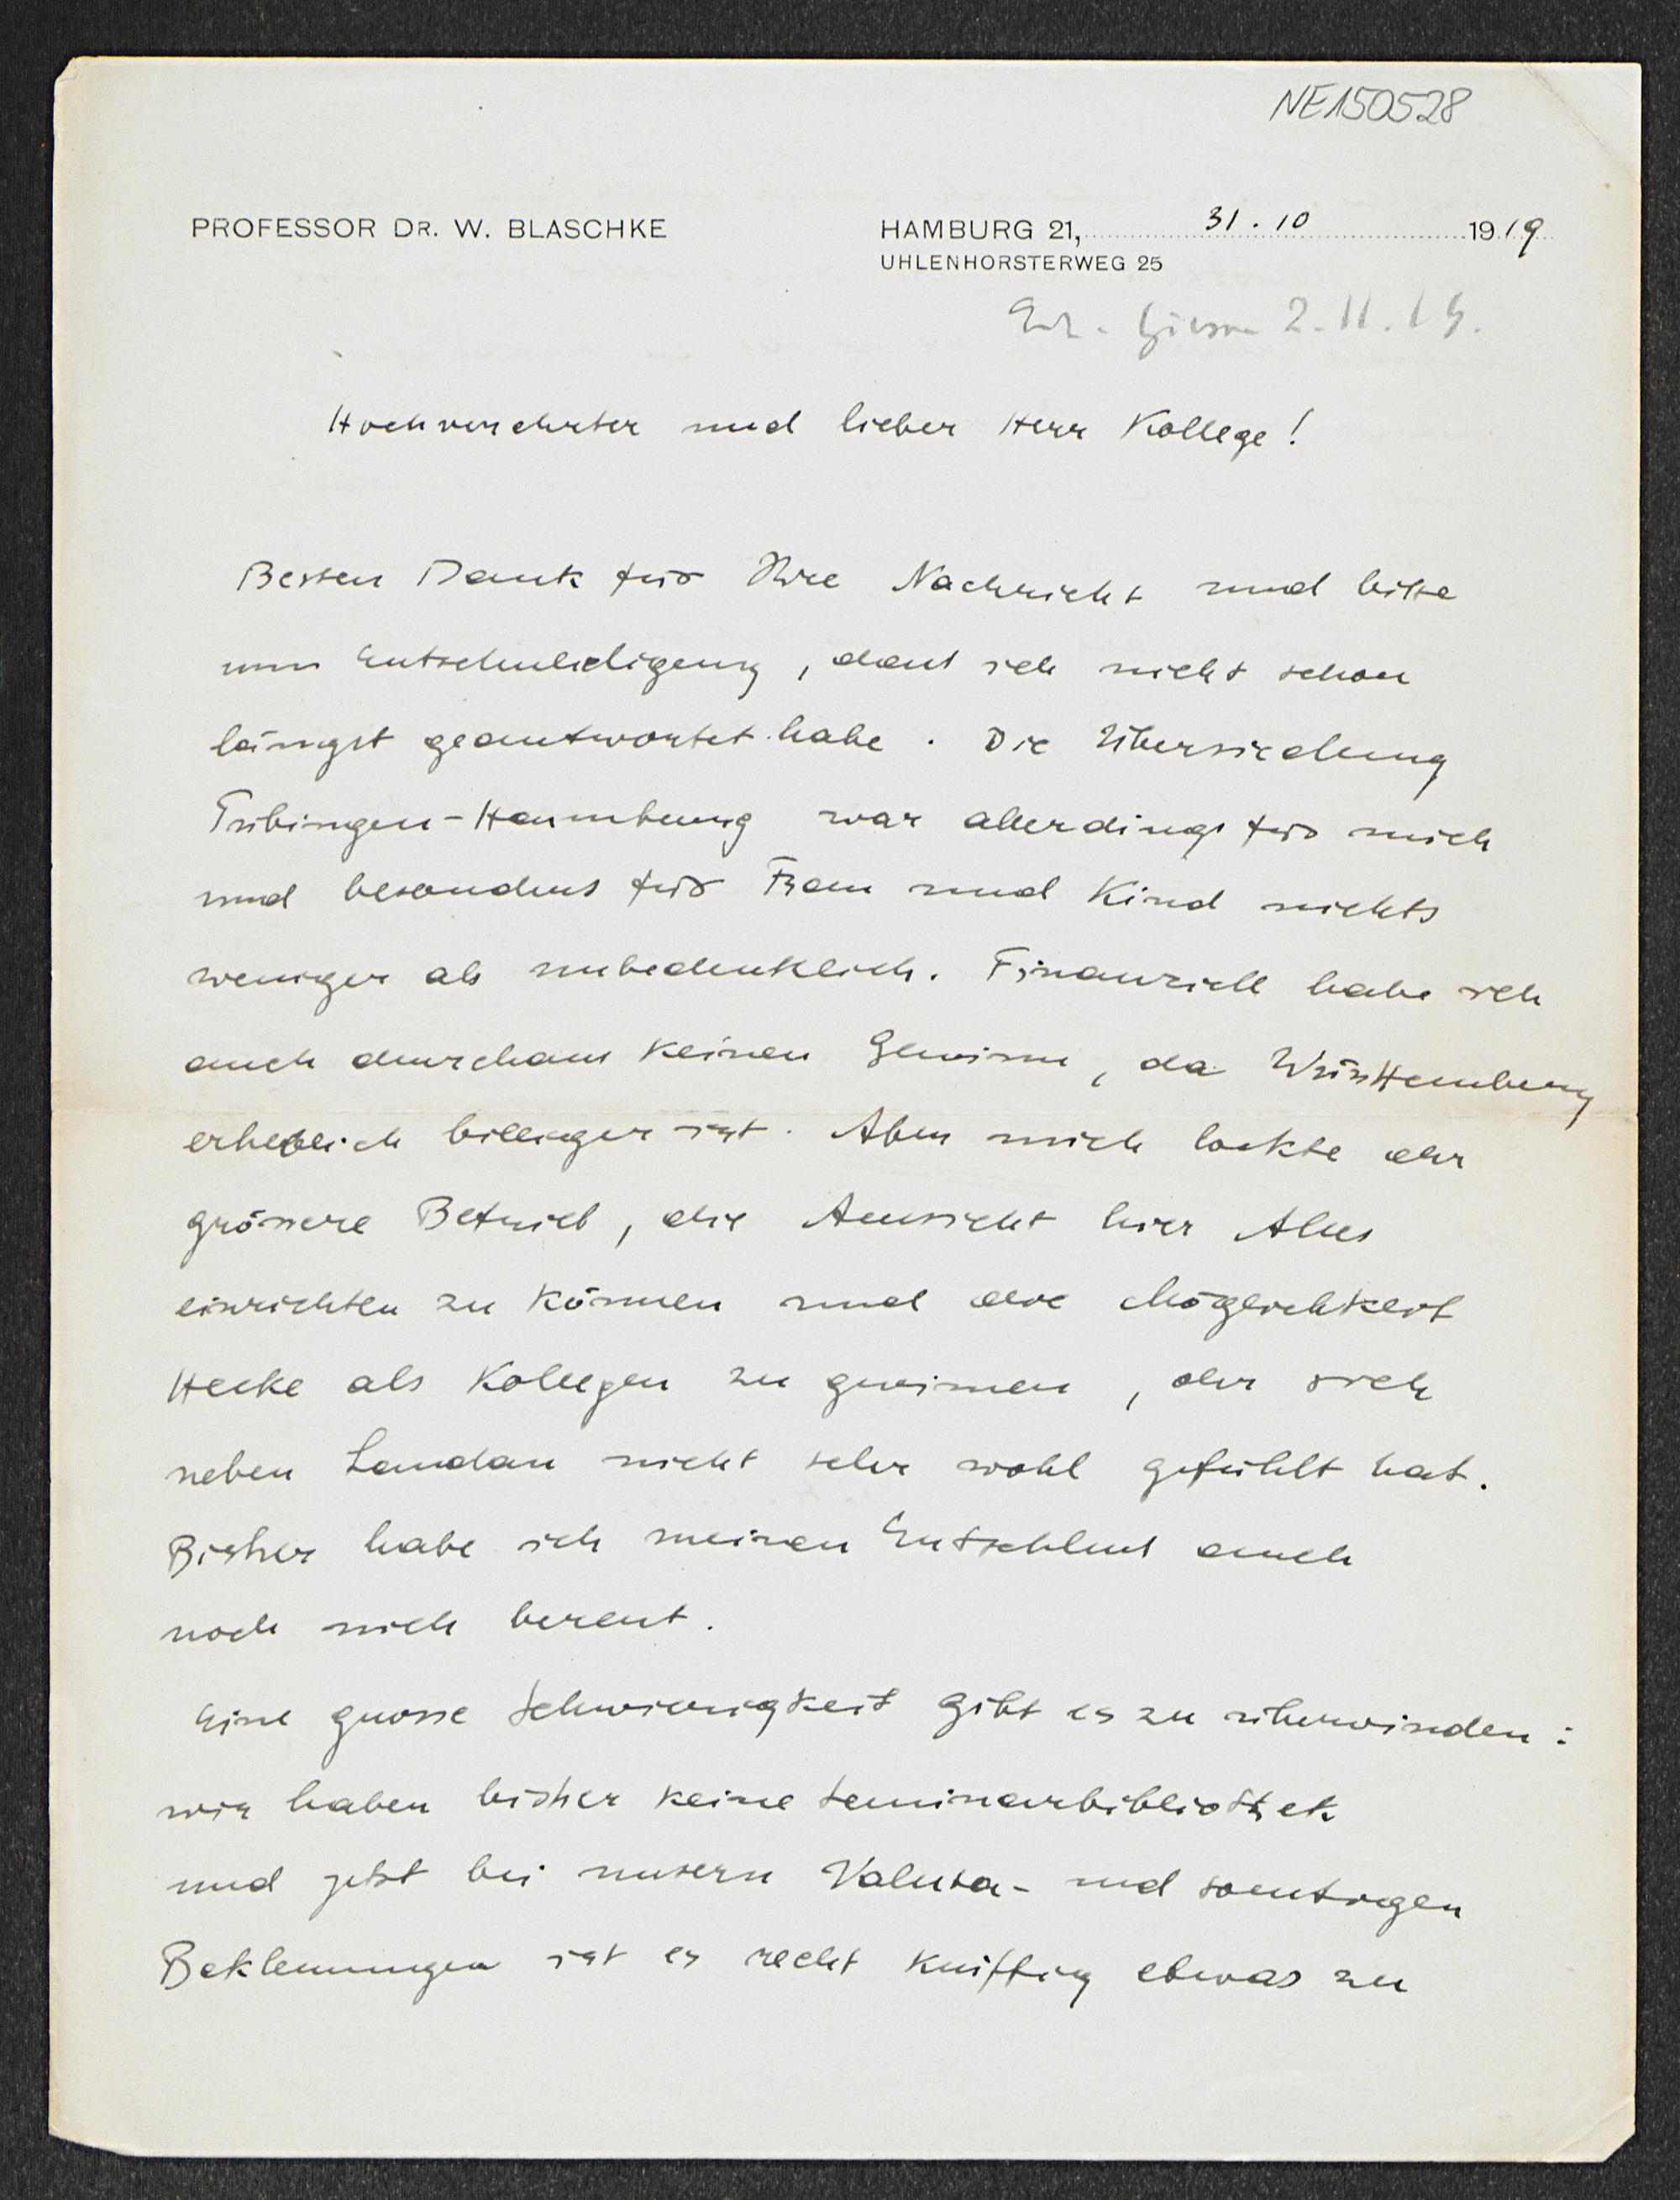 NE150528
PROFESSOR DR. W. BLASCHKE
HAMBURG 21, 31.10 1919
UHLENHORSTERWEG 25
2.11.19.
Hochverehrter und lieber Herr Kollege!
Besten Dank für Ihre Nachricht und bitte
um Entschuldigung, dass ich nicht schon
längst geantwortet habe. Die Übersiedlung
Tübingen-Hamburg war allerdings für mich
und besonders für Frau und Kind nichts
weniger als unbedenklich. Finanziell habe ich
auch durchaus keinen Gewinn, da Württemberg
erheblich billiger ist. Aber mich lockte der
grössere Betrieb, die Aussicht hier Alles
einrichten zu können und die Möglichkeit
Hecke als Kollegen zu gewinnen, der sich
neben Landau nicht sehr wohl gefühlt hat.
Bisher habe ich meinen Entschluss auch
noch nich bereut.
Eine grosse Schwierigkeit gibt es zu überwinden:
wir haben bisher keine Seminarbibliothek
und jetzt bei unsern Valuta- und sonstigen
Beklemmungen ist es recht kniffig etwas zu